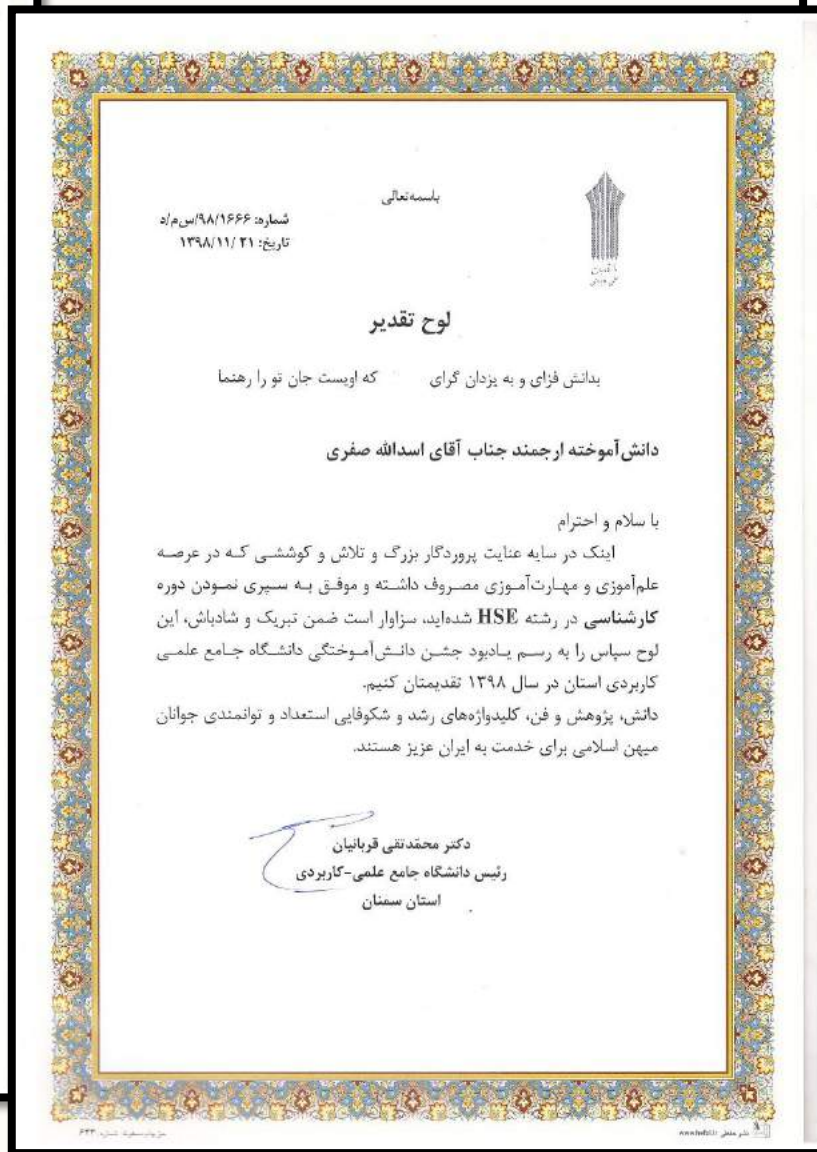 باسمه‌تعالی
شماره: ۹۸/۱۶۶۶/س‌م/د
تاریخ: ۲۱ /۱۳۹۸/۱۱
لوح تقدیر
بدانش فزای و به یزدان گرای که اویست جان تو را رهنما
دانش‌آموخته ارجمند جناب آقای اسدالله صفری
با سلام و احترام
اینک در سایه عنایت پروردگار بزرگ و تلاش و کوششی که در عرصه
علم‌آموزی و مهارت‌آموزی مصروف داشته و موفق به سپری نمودن دوره
کارشناسی در رشته HSE شده‌اید، سزاوار است ضمن تبریک و شادباش، این
لوح سپاس را به رسم یادبود جشن دانش‌آموختگی دانشگاه جامع علمی
کاربردی استان در سال ۱۳۹۸ تقدیمتان کنیم.
دانش، پژوهش و فن، کلیدواژه‌های رشد و شکوفایی استعداد و توانمندی جوانان
میهن اسلامی برای خدمت به ایران عزیز هستند.
دکتر محمّدتقی قربانیان
رئیس دانشگاه جامع علمی-کاربردی
استان سمنان